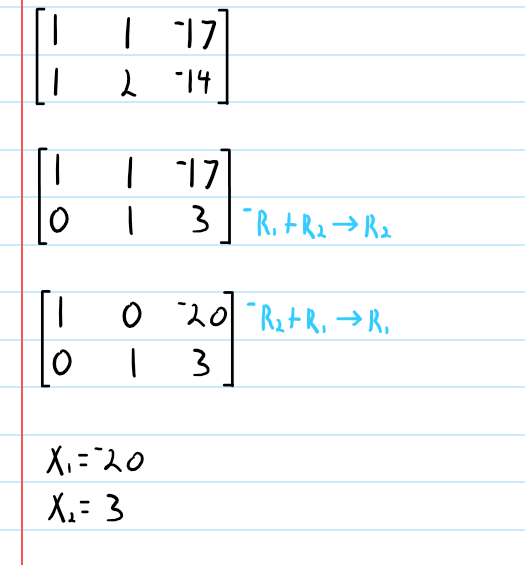 1 1 ⁻17
1 2 ⁻14
1 1 ⁻17
0 1 3 ⁻R₁ + R₂ → R₂
1 0 ⁻20 ⁻R₂ + R₁ → R₁
0 1 3
X₁ = ⁻20
X₂ = 3